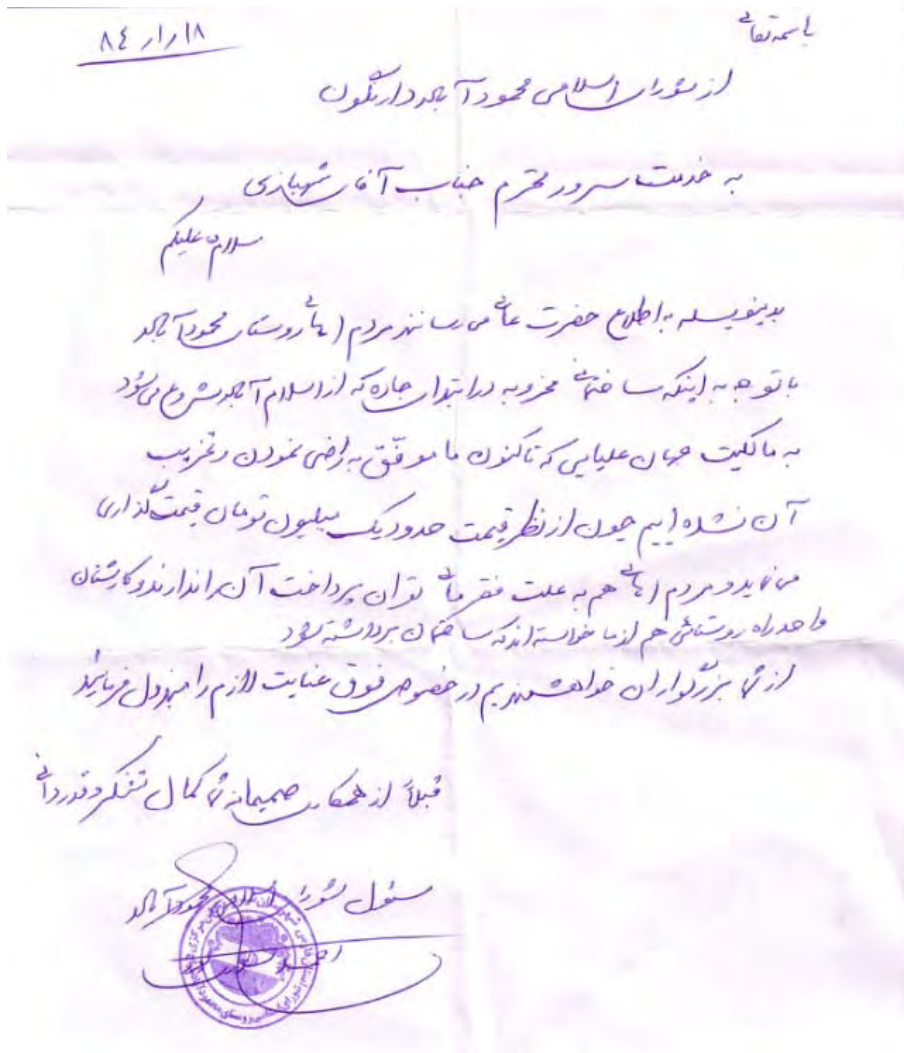 باسمه تعالی
۸۴/۱/۱۸
از شورای اسلامی محمودآباد دارنگون
به خدمت سرور محترم جناب آقای شهبازی
سلام علیکم
بدینوسیله به اطلاع حضرت عالی می رسانند مردم اهالی روستای محمودآباد
با توجه به اینکه ساختمان مخروبه در ابتدای جاده که از اسلام آباد شروع می شود
به مالکیت علیایی که تاکنون ما موفق به راضی نمودن و تخریب
آن نشده ایم چون از نظر قیمت حدود یک میلیون تومان قیمت گذاری
می نماید و مردم اهالی هم به علت فقر مالی توان پرداخت آن را ندارند و کارشناسان
واحد راه روستائی هم از ما خواسته اند که ساختمان برداشته شود
از شما بزرگواران خواهشمندیم در خصوص فوق عنایت لازم را مبذول فرمائید
قبلاً از همکاری صمیمانه شما کمال تشکر و قدردانی
مسئول شورای اسلامی محمودآباد